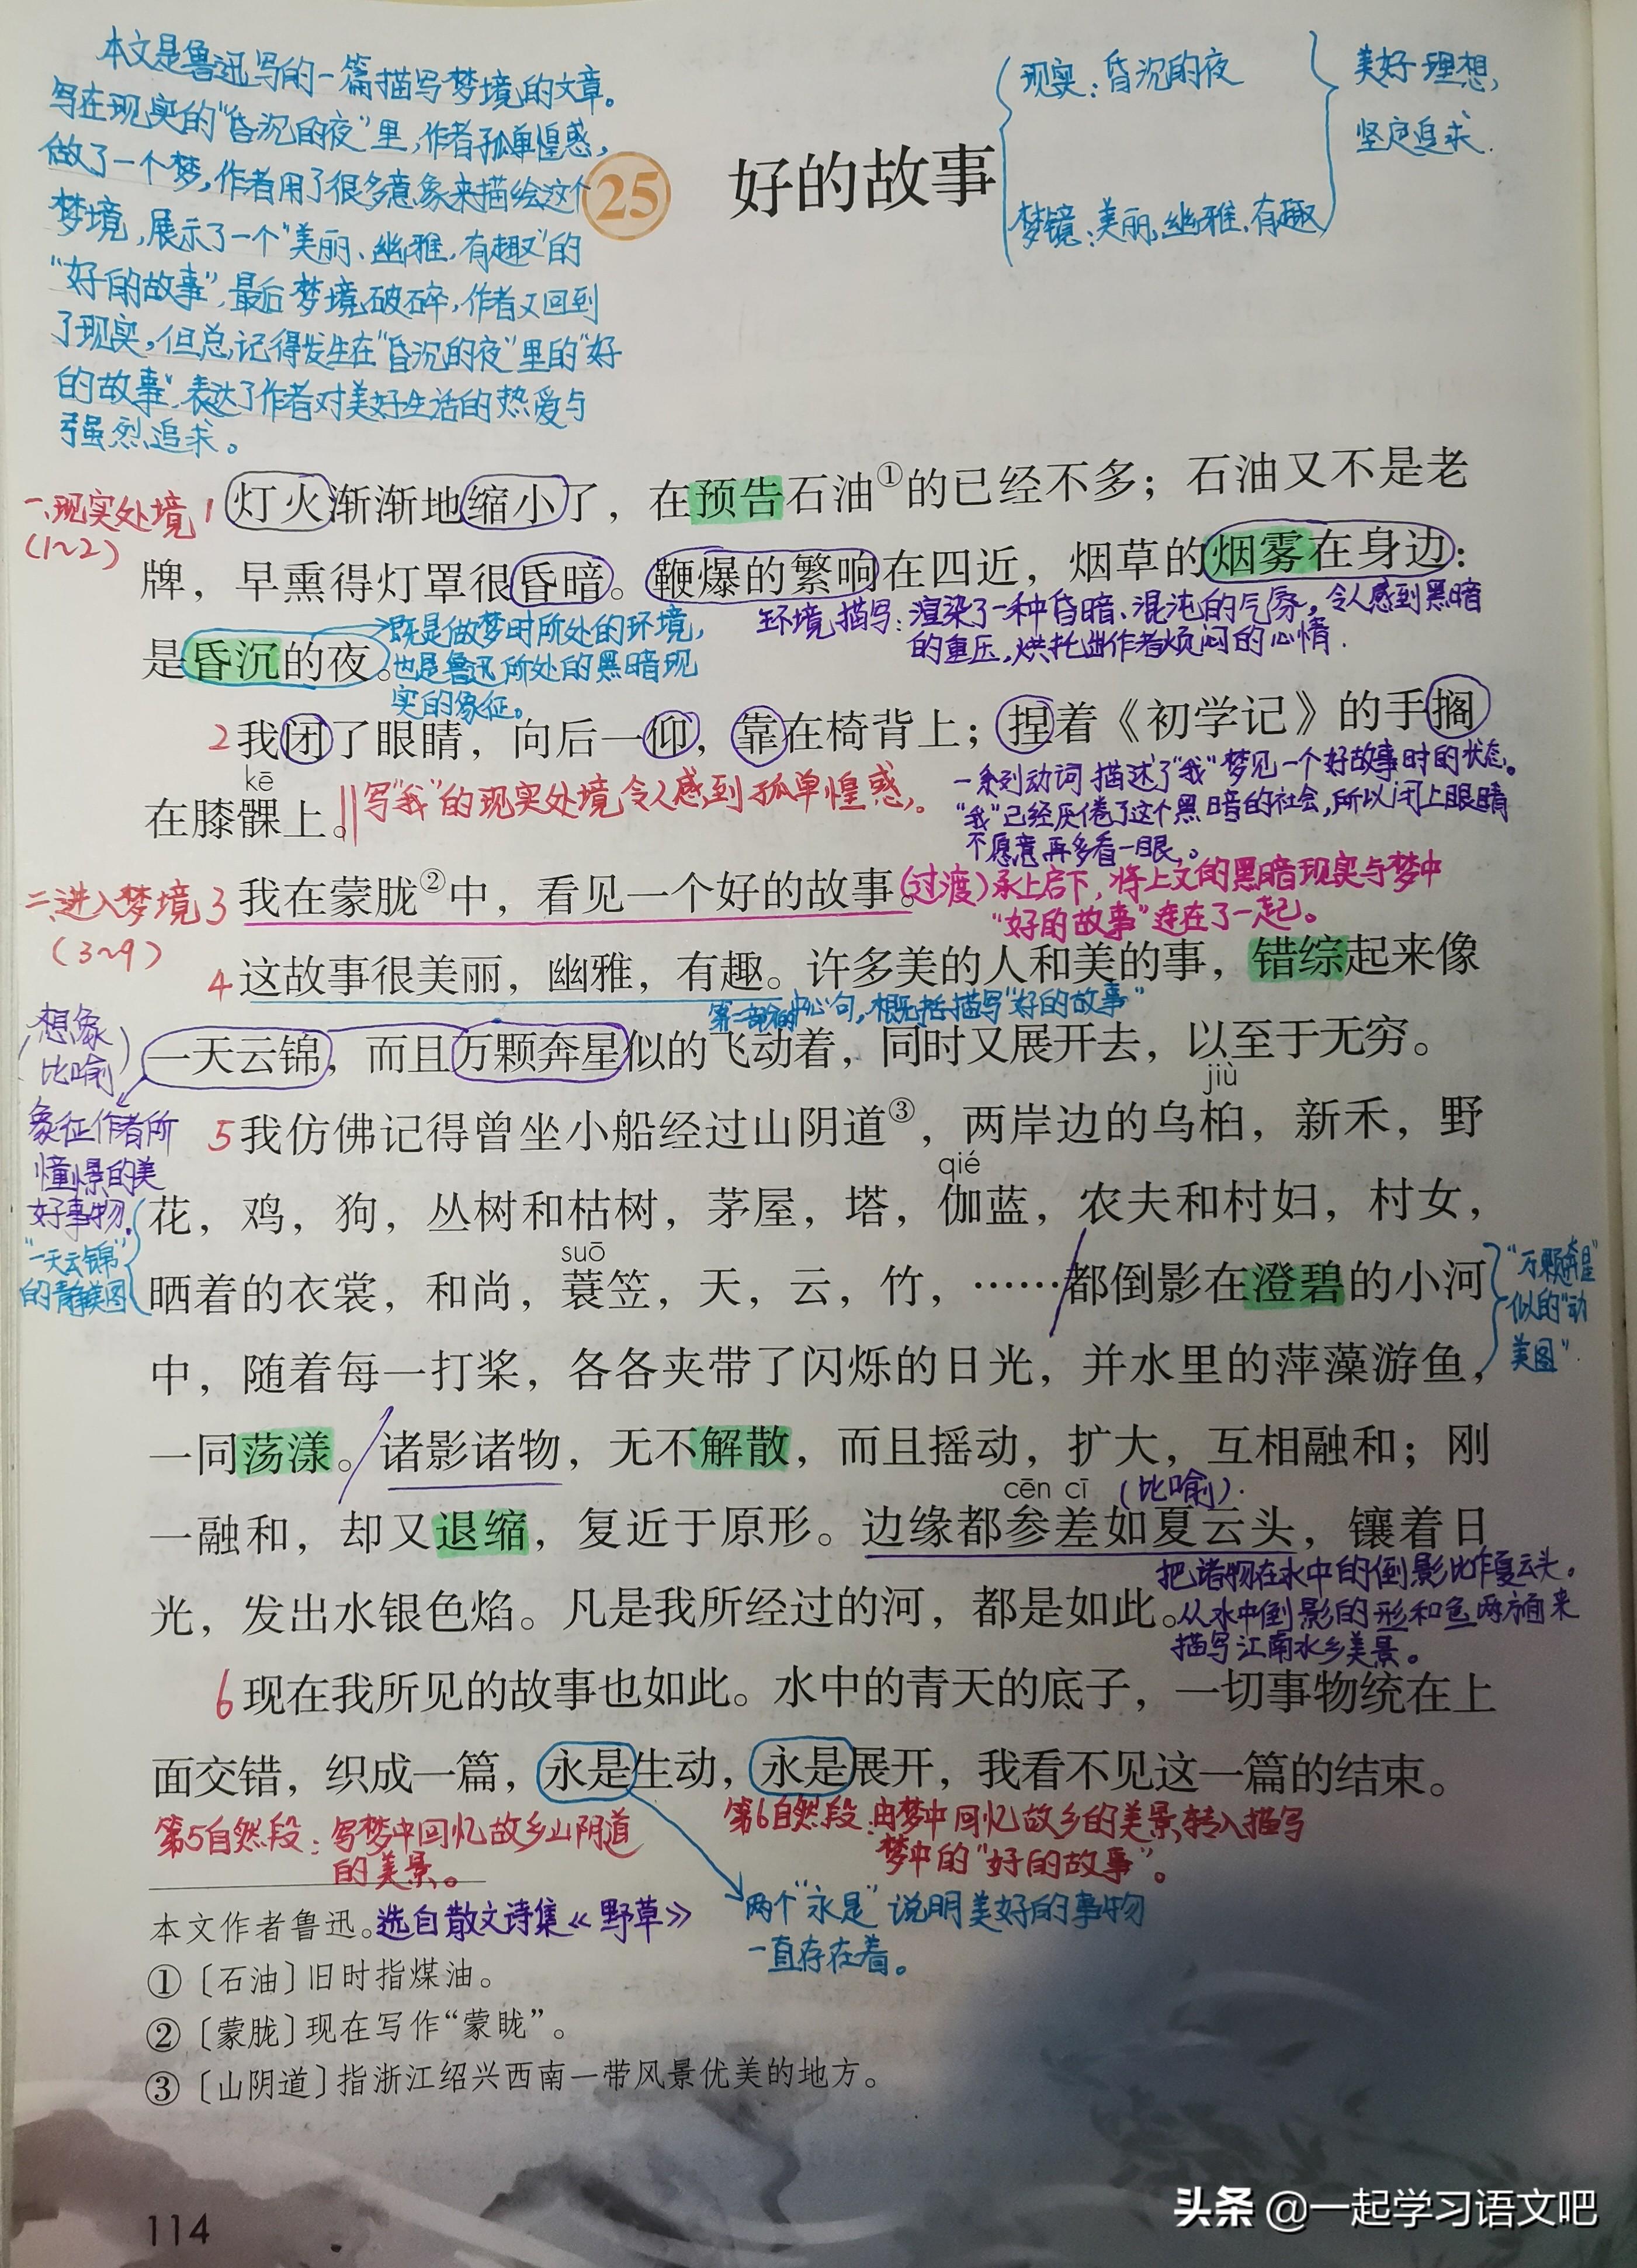 本文是鲁迅写的一篇描写梦境的文章。
写在现实的“昏沉的夜”里,作者孤单惶惑,
做了一个梦,作者用了很多意象来描绘这个
梦境,展示了一个“美丽、幽雅、有趣”的
“好的故事”,最后梦境破碎,作者又回到
了现实,但总记得发生在“昏沉的夜”里的“好
的故事”,表达了作者对美好生活的热爱与
强烈追求。
25 好的故事
现实:昏沉的夜
梦镜:美丽,幽雅,有趣
美好理想,
坚定追求.
一、现实处境
(1~2)
1 灯火渐渐地缩小了,在预告石油①的已经不多;石油又不是老
牌,早熏得灯罩很昏暗。鞭爆的繁响在四近,烟草的烟雾在身边:
环境描写:渲染了一种昏暗、混沌的气氛,令人感到黑暗
的重压,烘托出作者烦闷的心情.
是昏沉的夜。
既是做梦时所处的环境,
也是鲁迅所处的黑暗现
实的象征。
2 我闭了眼睛,向后一仰,靠在椅背上;捏着《初学记》的手搁
kē
在膝髁上。
写“我”的现实处境令人感到孤单惶惑。
一系列动词描述了“我”梦见一个好故事时的状态。
“我”已经厌倦了这个黑暗的社会,所以闭上眼睛
不愿意再多看一眼。
二、进入梦境
(3~9)
3 我在蒙胧②中,看见一个好的故事。
(过渡)承上启下,将上文的黑暗现实与梦中
“好的故事”连在了一起。
4 这故事很美丽,幽雅,有趣。许多美的人和美的事,错综起来像
第二部分的中心句,概括描写“好的故事”
一天云锦,而且万颗奔星似的飞动着,同时又展开去,以至于无穷。
想象
比喻
象征作者所
憧憬的美
好事物.
“一天云锦”
的静美图
jiù
5 我仿佛记得曾坐小船经过山阴道③,两岸边的乌桕,新禾,野
qié
花,鸡,狗,丛树和枯树,茅屋,塔,伽蓝,农夫和村妇,村女,
suō
晒着的衣裳,和尚,蓑笠,天,云,竹,……都倒影在澄碧的小河
“万颗奔星”
似的“动
美图”.
中,随着每一打桨,各各夹带了闪烁的日光,并水里的萍藻游鱼,
一同荡漾。诸影诸物,无不解散,而且摇动,扩大,互相融和;刚
cēn cī (比喻).
一融和,却又退缩,复近于原形。边缘都参差如夏云头,镶着日
光,发出水银色焰。凡是我所经过的河,都是如此。
把诸物在水中的倒影比作夏云头。
从水中倒影的形和色两方面来
描写江南水乡美景。
6 现在我所见的故事也如此。水中的青天的底子,一切事物统在上
面交错,织成一篇,永是生动,永是展开,我看不见这一篇的结束。
第5自然段:写梦中回忆故乡山阴道
的美景。
第6自然段:由梦中回忆故乡的美景,转入描写
梦中的“好的故事”。
两个“永是”说明美好的事物
一直存在着。
本文作者鲁迅。选自散文诗集《野草》
①〔石油〕旧时指煤油。
②〔蒙胧〕现在写作“蒙眬”。
③〔山阴道〕指浙江绍兴西南一带风景优美的地方。
114
头条 @一起学习语文吧